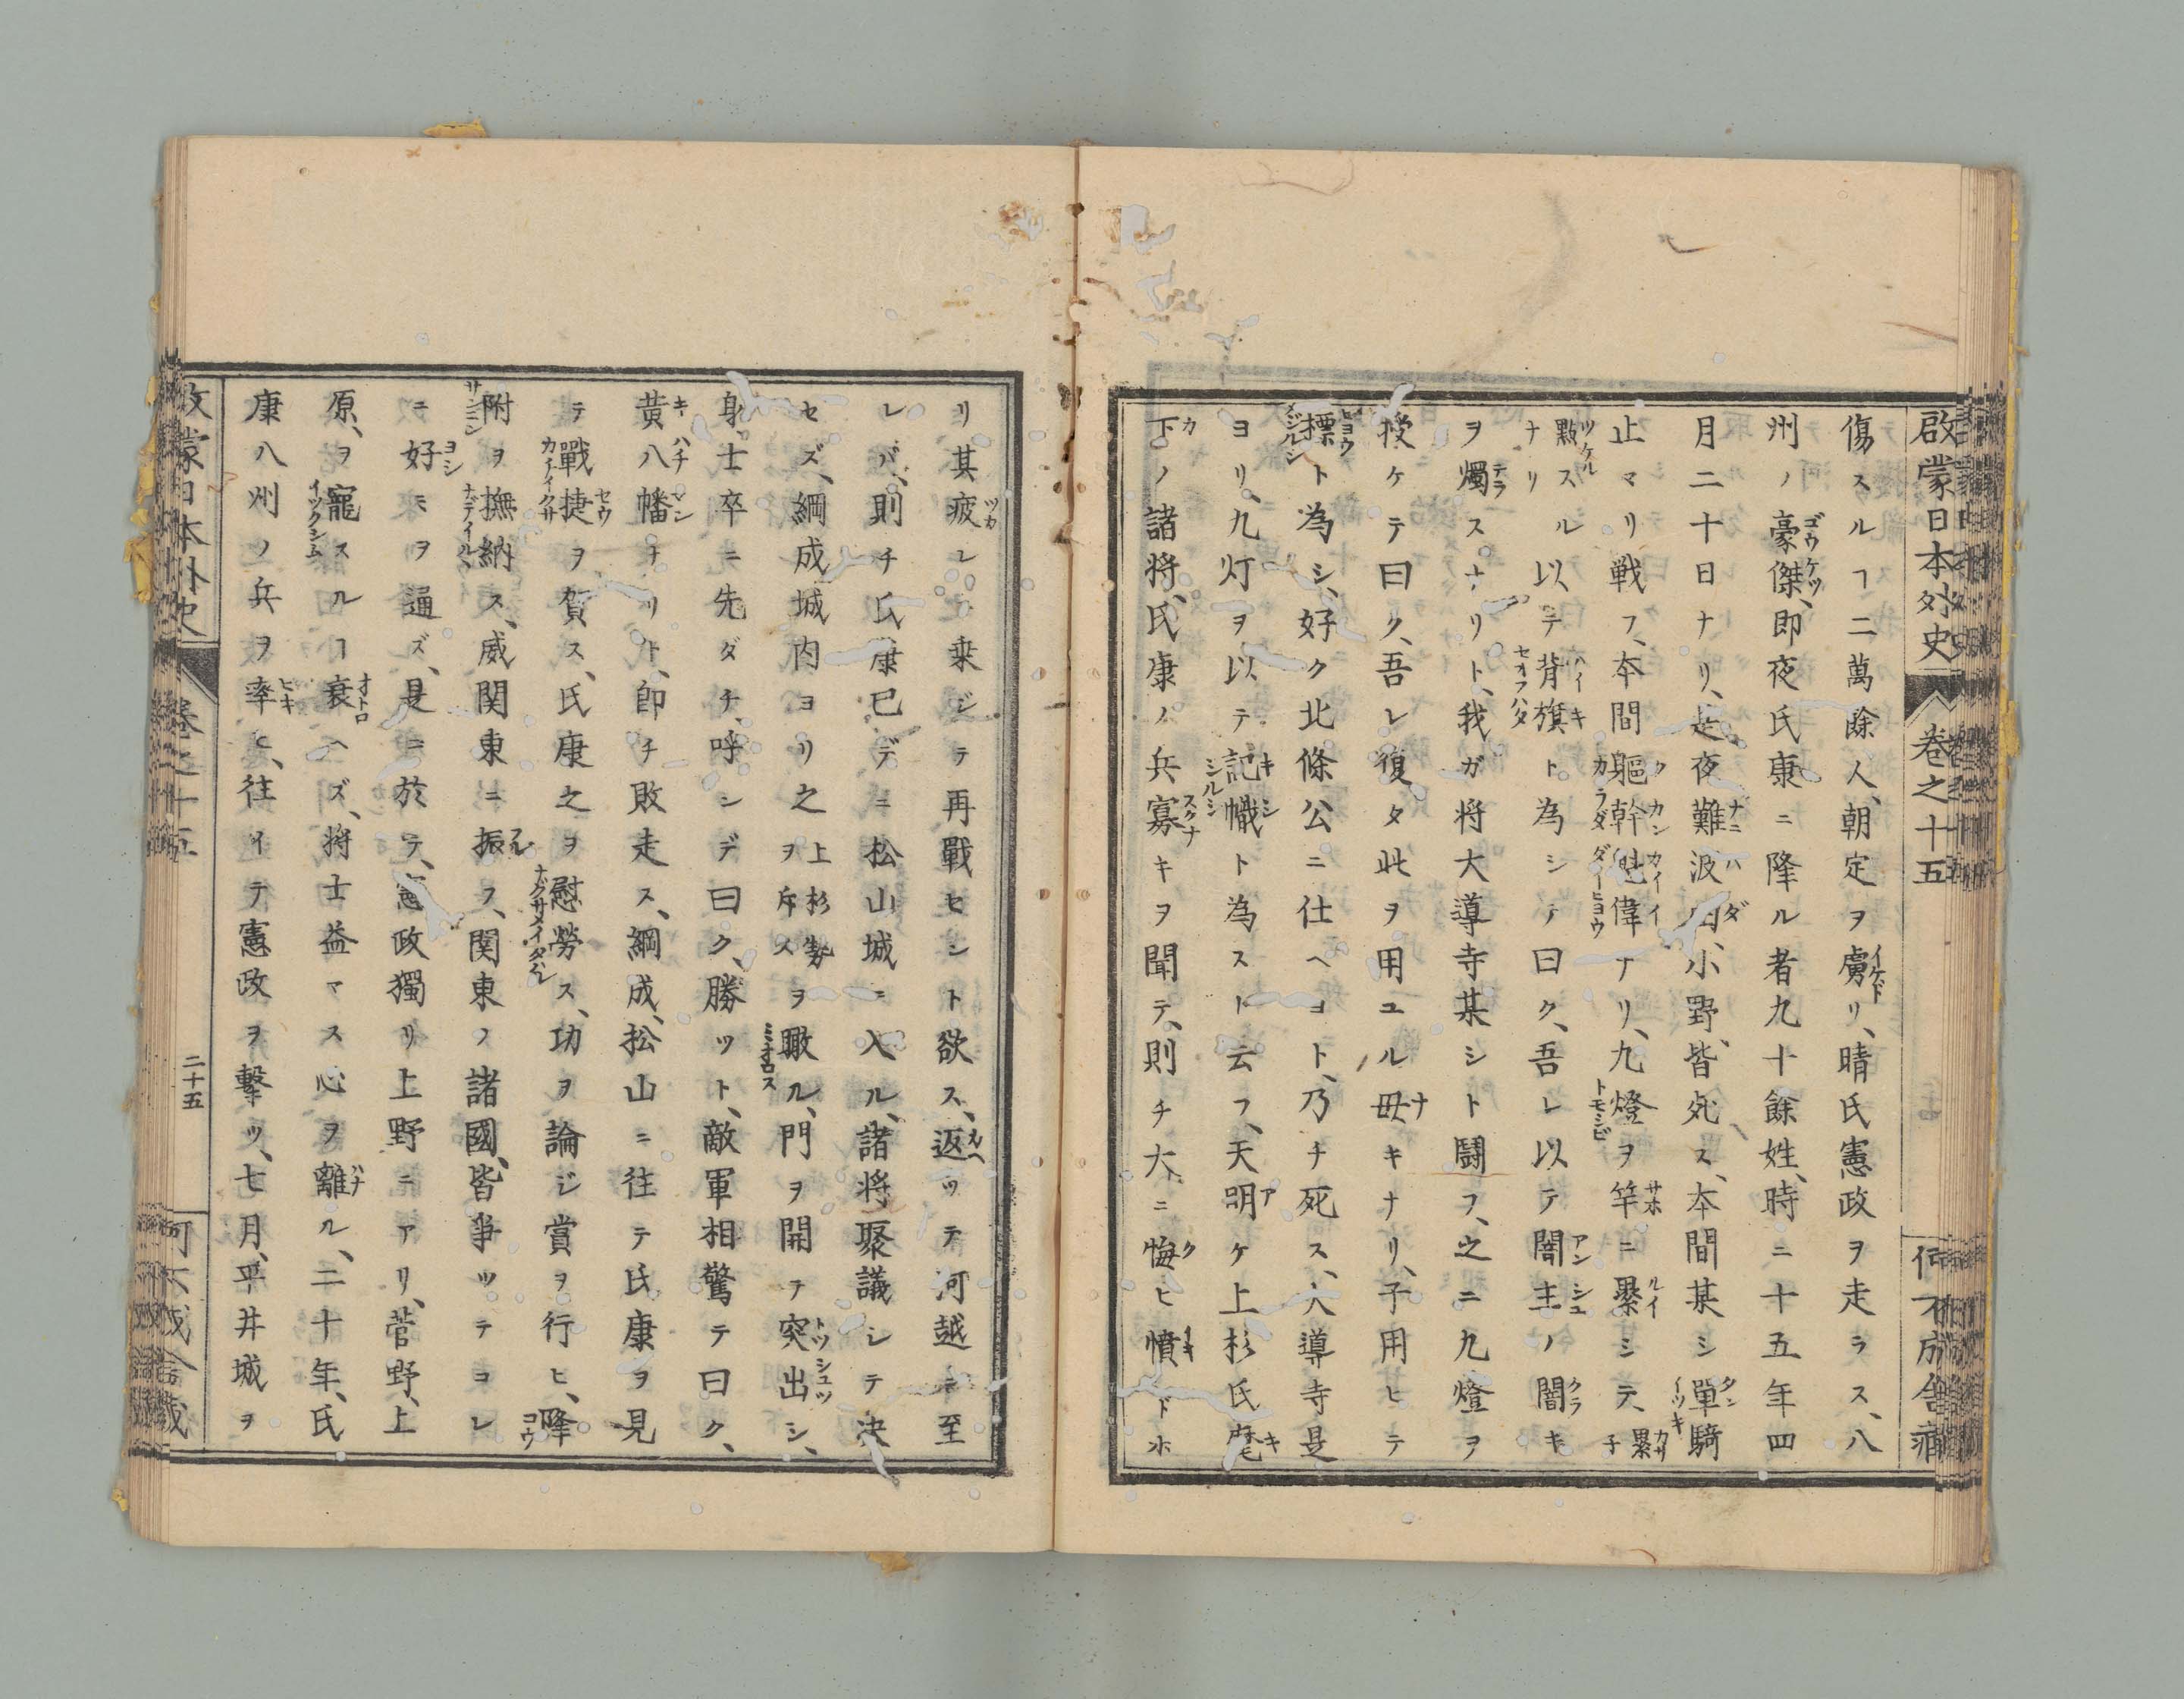 啟蒙日本外史 卷之十五
傷スルヿ二萬餘人、朝定ヲ虜リ、晴氏憲政ヲ走ラス、八
州ノ豪傑、即夜氏康ニ降ル者九十餘姓、時ニ十五年四
月二十日ナリ、是夜難波田、小野、皆死ス、本間某シ單騎
止マリ戦フ、本間軀幹魁偉ナリ、九燈ヲ竿ニ纍シテ、子累
點スル ナリ 以テ背旗ト為シテ曰ク、吾レ以テ闇主ノ闇キ
ヲ燭スナリト、我ガ将大導寺某シト鬪フ、之ニ九燈ヲ
授ケテ曰ク、吾レ復タ此ヲ用ユル毋キナリ、子用ヒテ
標ト為シ、好ク北條公ニ仕ヘヨト、乃チ死ス、大導寺是
ヨリ、九灯ヲ以テ記幟ト為スト云フ、天明ケ上杉氏麾
下ノ諸将、氏康ノ兵寡キヲ聞テ、則チ大ニ悔ヒ憤ドホ
リ其疲レニ乗ジテ再戰セント欲ス、返ツテ河越ニ至
レバ、則チ氏康已デニ松山城ニ入ル、諸将聚議シテ決
セズ、綱成城内ヨリ之ヲ斥ス 上杉勢ヲ瞰ル、門ヲ開テ突出シ、
身、士卒ニ先ダチ、呼ンデ曰ク、勝ツト、敵軍相驚テ曰ク、
黄八幡ナリト、即チ敗走ス、綱成、松山ニ往テ氏康ヲ見
テ戰捷ヲ賀ス、氏康之ヲ慰勞ス、功ヲ論ジ賞ヲ行ヒ、降
附ヲ撫納ス、威関東ニ振フ、関東ノ諸國、皆爭ツテヨレ
ニ好ミヲ通ズ、是ニ於テ、憲政獨リ上野ニアリ、菅野、上
原、ヲ寵スルヿ衰ヘズ、将士益マス心ヲ離ル、二十年、氏
康八州ノ兵ヲ率ヒ、往イテ憲政ヲ擊ツ、七月、平井城ヲ
二十五